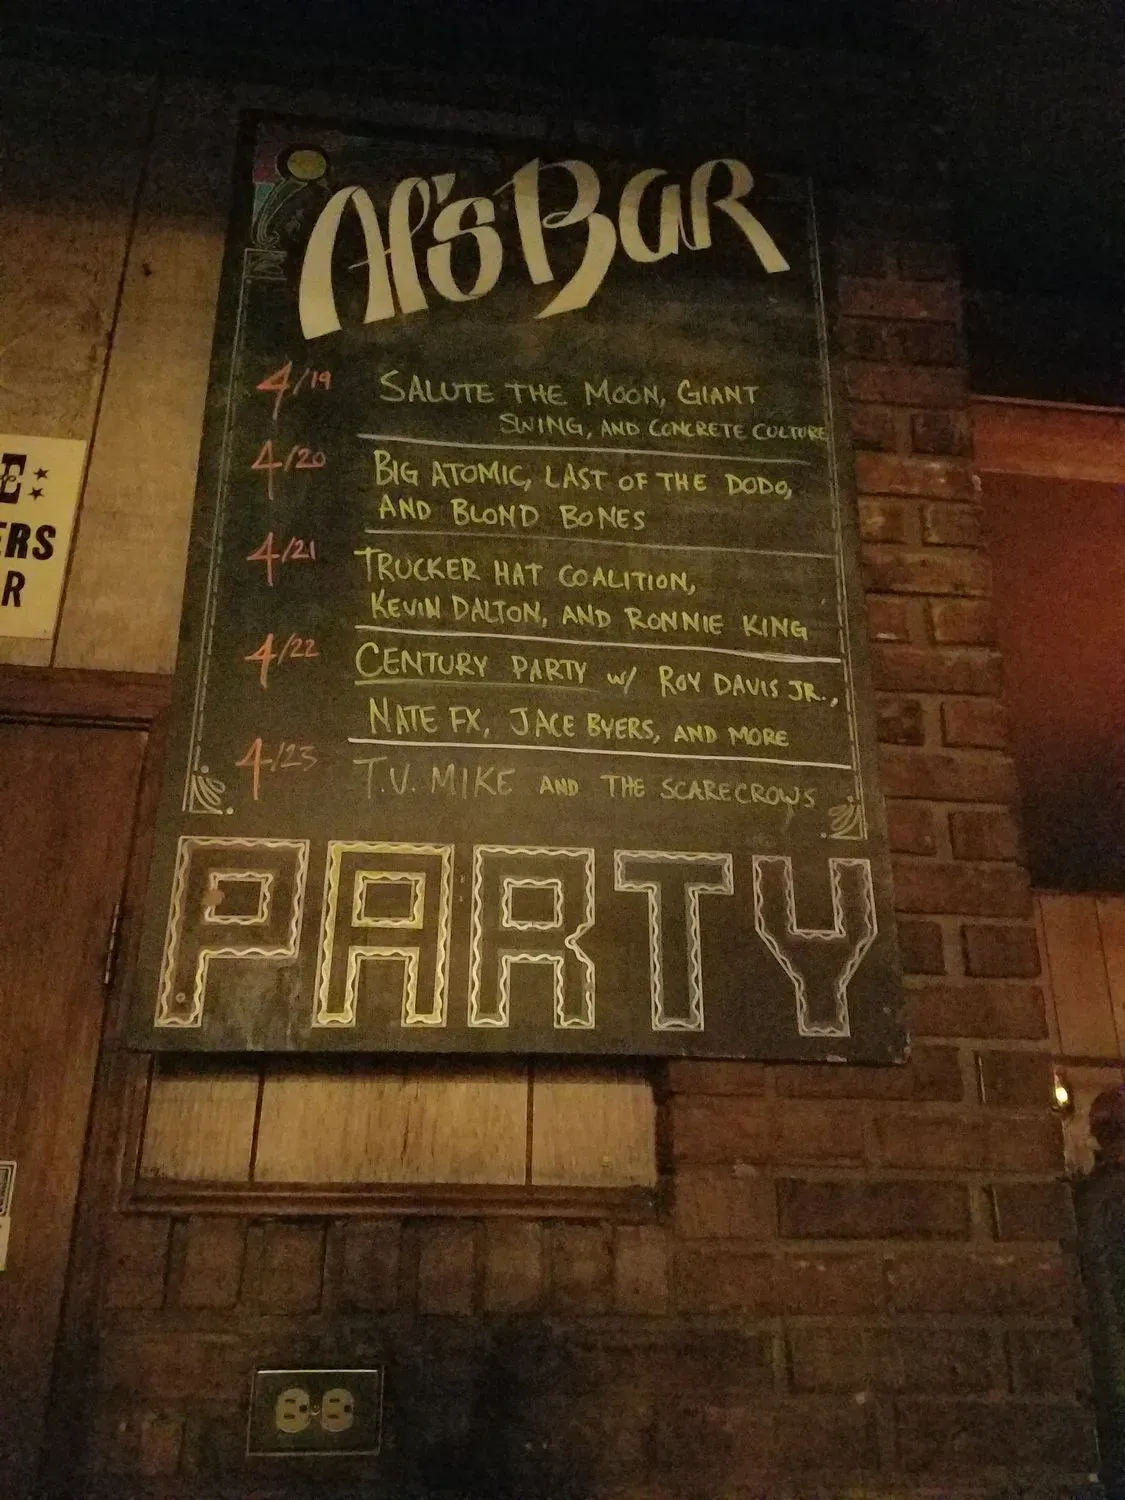 Al's Bar
4/19 SALUTE THE MOON, GIANT
SWING, AND CONCRETE CULTURE
4/20 BIG ATOMIC, LAST OF THE DODO,
AND BLOND BONES
4/21 TRUCKER HAT COALITION,
KEVIN DALTON, AND RONNIE KING
4/22 CENTURY PARTY w/ ROY DAVIS JR.,
NATE FX, JACE BYERS, AND MORE
4/23 T.V. MIKE AND THE SCARECROWS
PARTY
E:
ERS
R